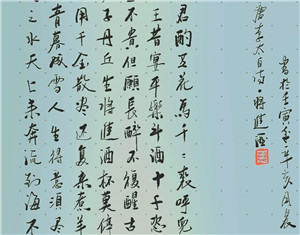 之水天上来奔流到海不
青暮成雪人生得意須盡
用千金散盡還复来煮羊
子丹丘生將進酒杯莫停
不貴但願長醉不復醒古
王昔宴平樂斗酒十千恣
君酌五花馬千金裘呼兒
唐李太白诗·將進酒
書於壬寅年辛亥月晨